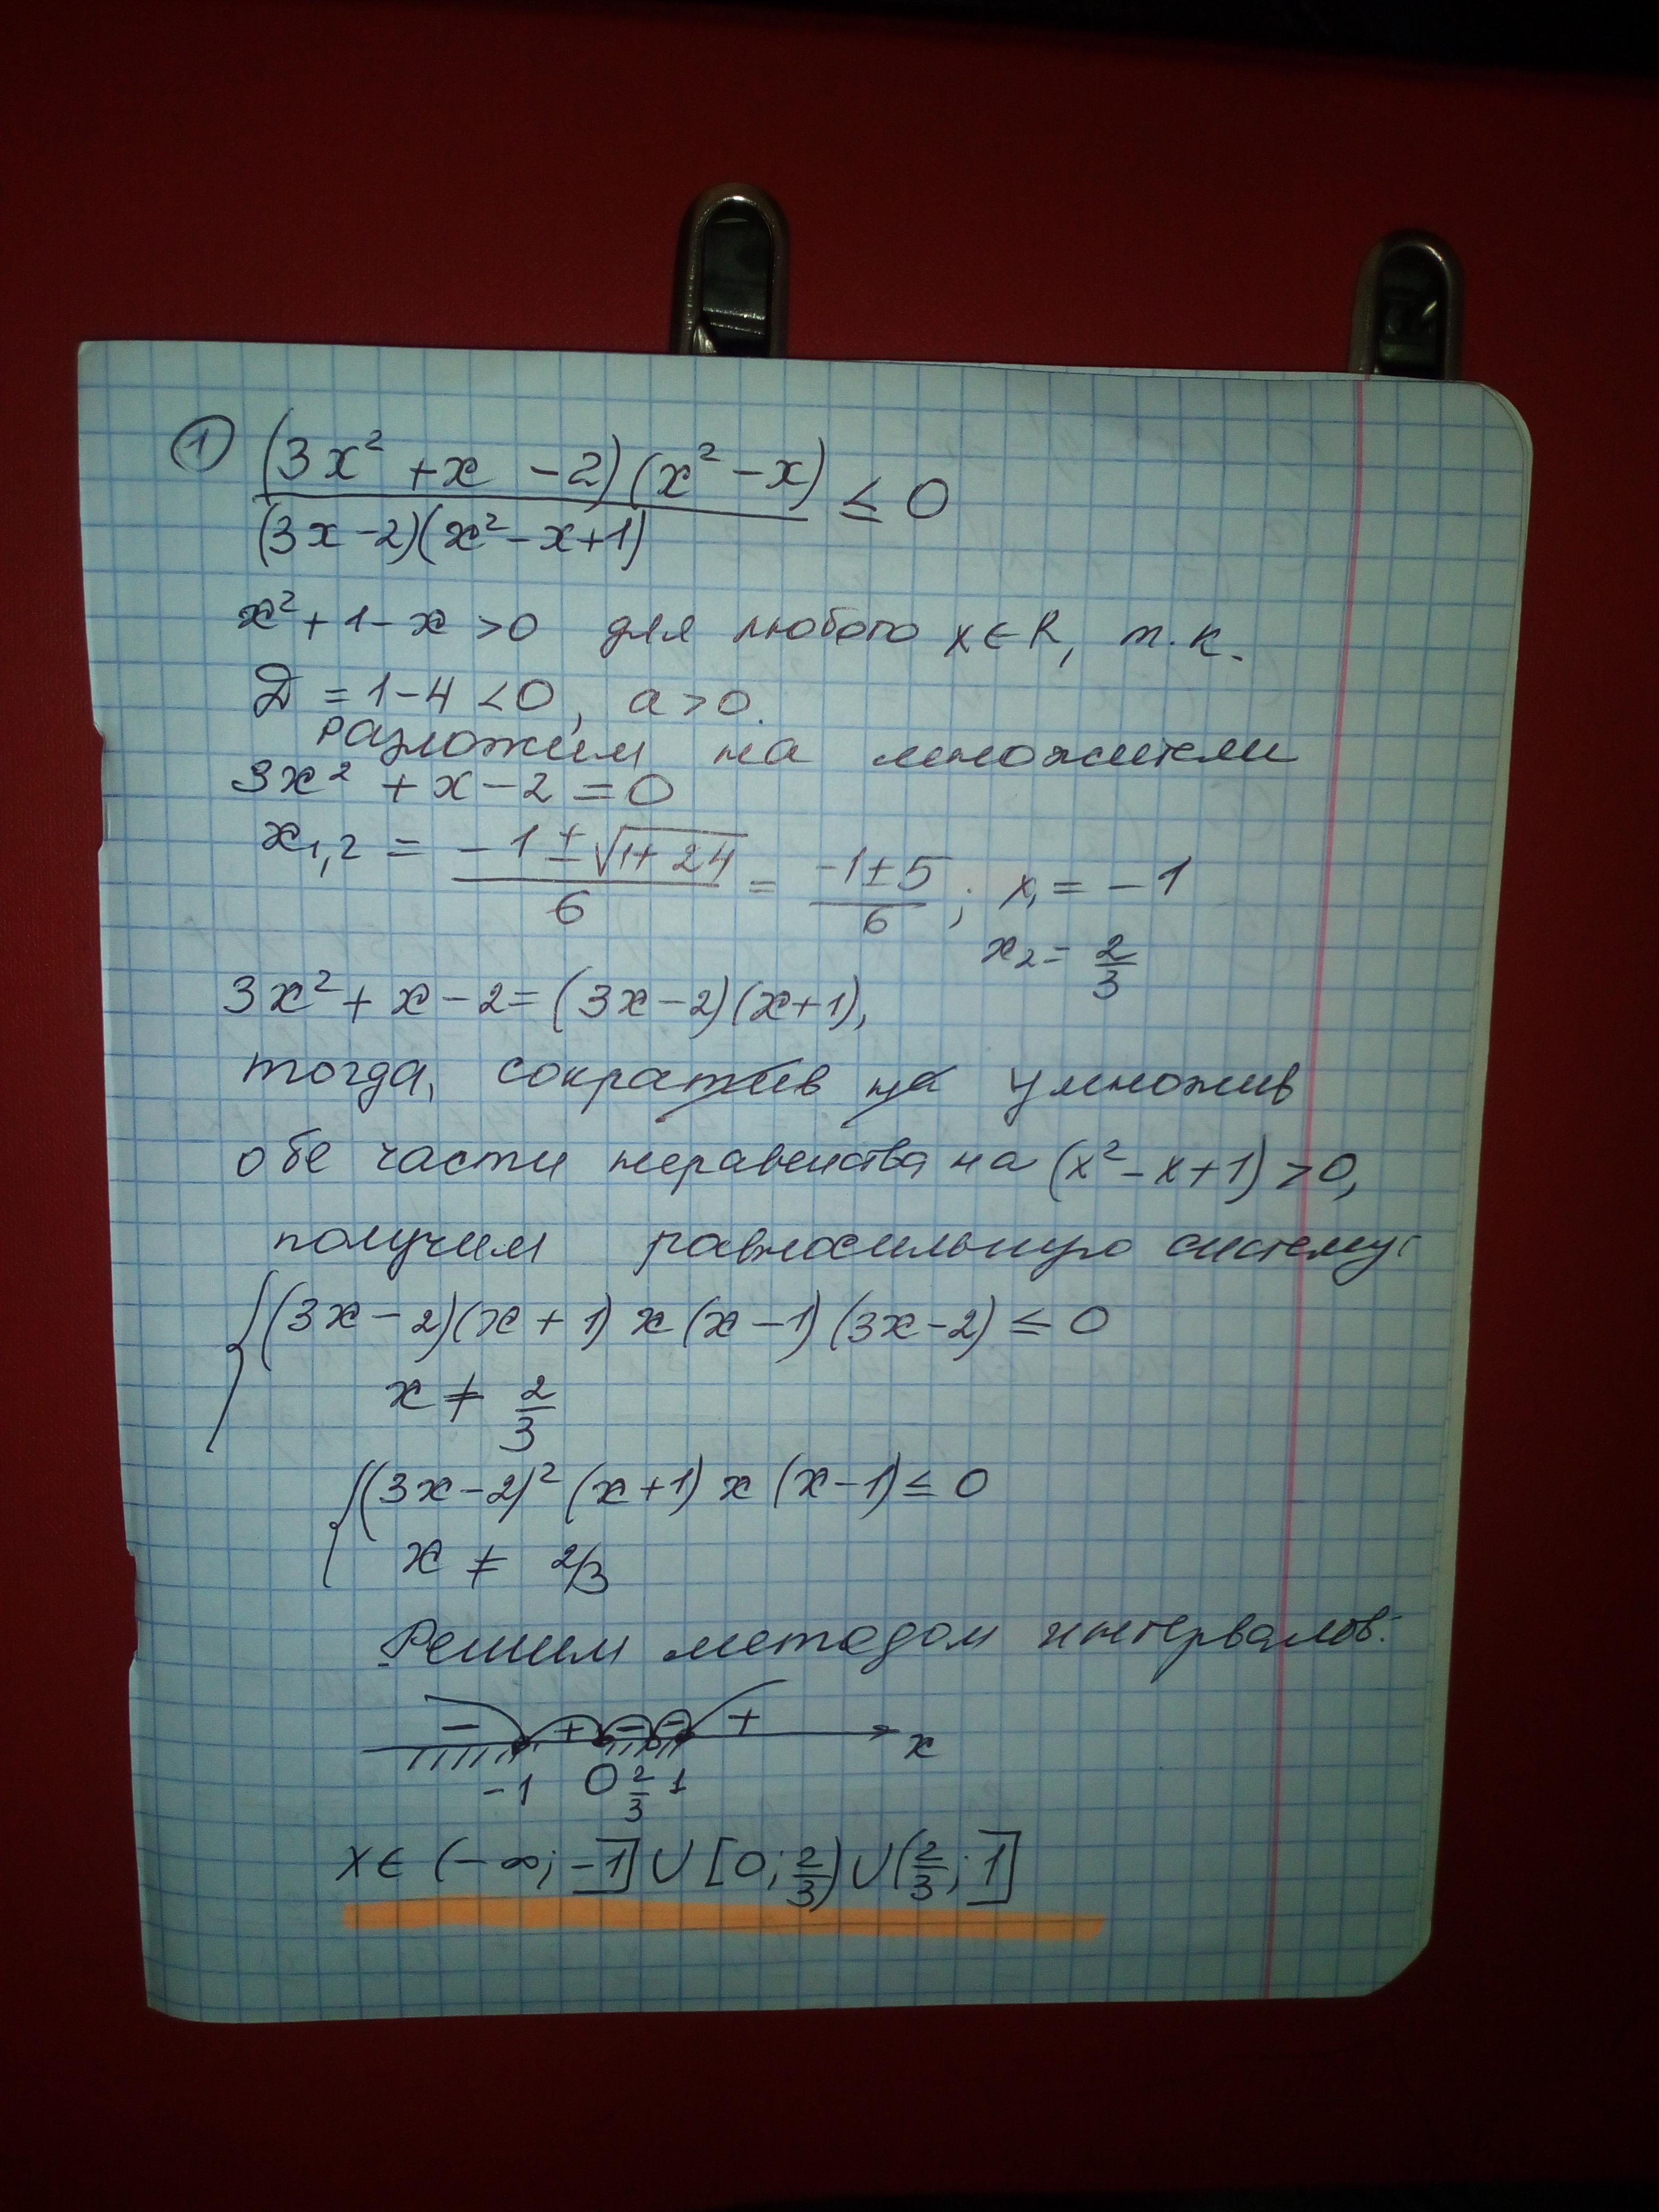 ① (3x² + x - 2)(x² - x)
(3x - 2)(x² - x + 1) ≤ 0
x² + 1 - x > 0 для любого x ∈ R, т.к.
D = 1 - 4 < 0, a > 0.
разложим на множители
3x² + x - 2 = 0
x₁,₂ = (-1 ± √(1 + 24))/6 = (-1 ± 5)/6 ; x₁ = -1
x₂ = 2/3
3x² + x - 2 = (3x - 2)(x + 1),
тогда, сократив на умножив
обе части неравенства на (x² - x + 1) > 0,
получим равносильную систему:
{ (3x - 2)(x + 1) x (x - 1)(3x - 2) ≤ 0
x ≠ 2/3
{ (3x - 2)² (x + 1) x (x - 1) ≤ 0
x ≠ 2/3
Решим методом интервалов:
- + - - + x
-1 0 2/3 1
x ∈ (-∞; -1] ∪ [0; 2/3) ∪ (2/3; 1]